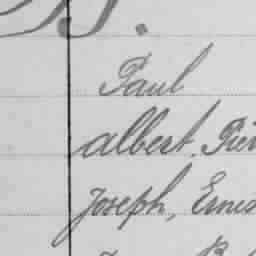 B.
Paul
albert, Pier
Joseph, Ernes